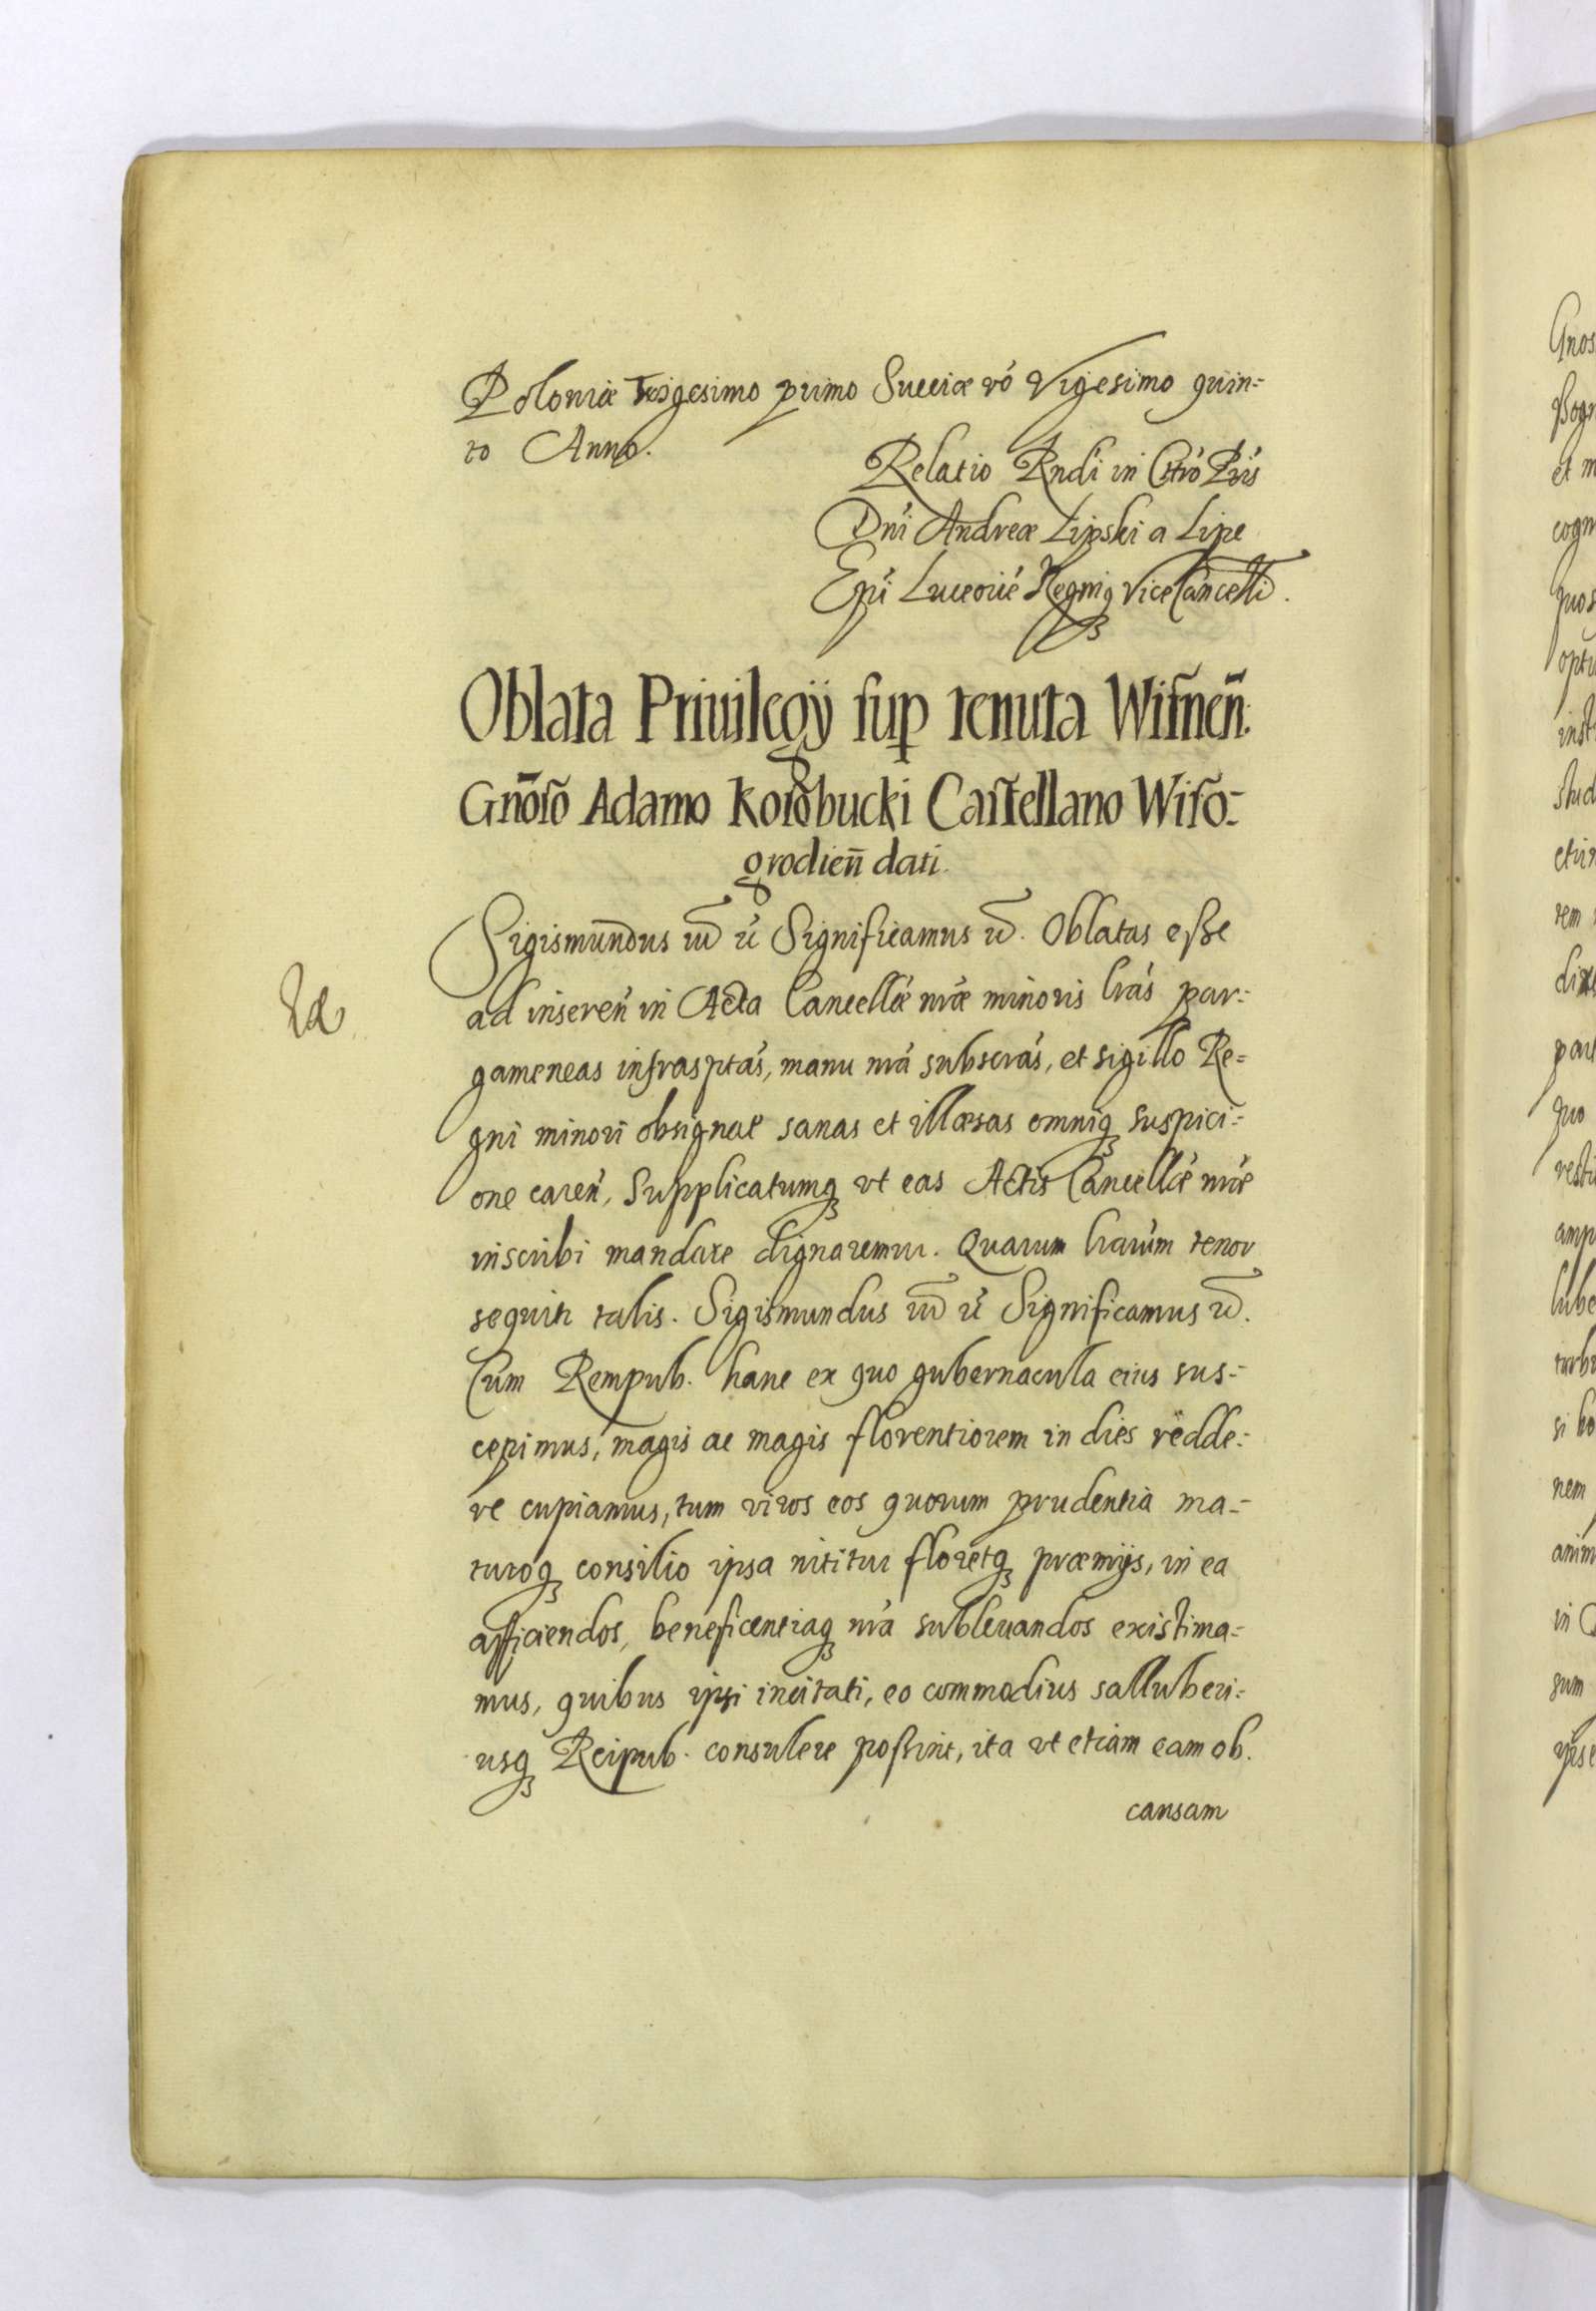 Poloniæ Trigesimo primo Sueciæ vó Vigesimo quin=
to Anno.
Relatio Rndi in Chró Pris
Dni Andreæ Lipski a Lipe
Epi Luceorié Regniq₃ ViceCancellr.
Oblata Priuilegÿ sup tenuta Wisneñ.
Gñoso Adamo Korobucki Castellano Wiso=
grodieñ dati.
Sigismundus Significamus Oblatas esse
ad inseren in Acta Cancellæ nræ minoris lras par=
gameneas infrasptas, manu nra subscras, et sigillo Re=
gni minori obsignat sanas et illæsas omniq₃ suspici=
one caren, Supplicatumq₃ vt eas Actis Cancellæ nræ
inscribi mandare dignaremur. Quarum lrarum tenor
sequitr talis. Sigismundus Significamus
Cum Rempub. hanc ex quo gubernacula eius sus=
cepimus, magis ac magis florentiorem in dies redde=
re cupiamus, tum viros eos quorum prudentia ma=
turoq₃ consilio ipsa nititur floretq₃ præmijs, in ea
afficiendos, beneficentiaq₃ nra subleuandos existima=
mus, quibus ipsi incitati, eo commodius salluberi=
usq₃ Reipub. consulere possint, ita vt etiam eam ob.
causam